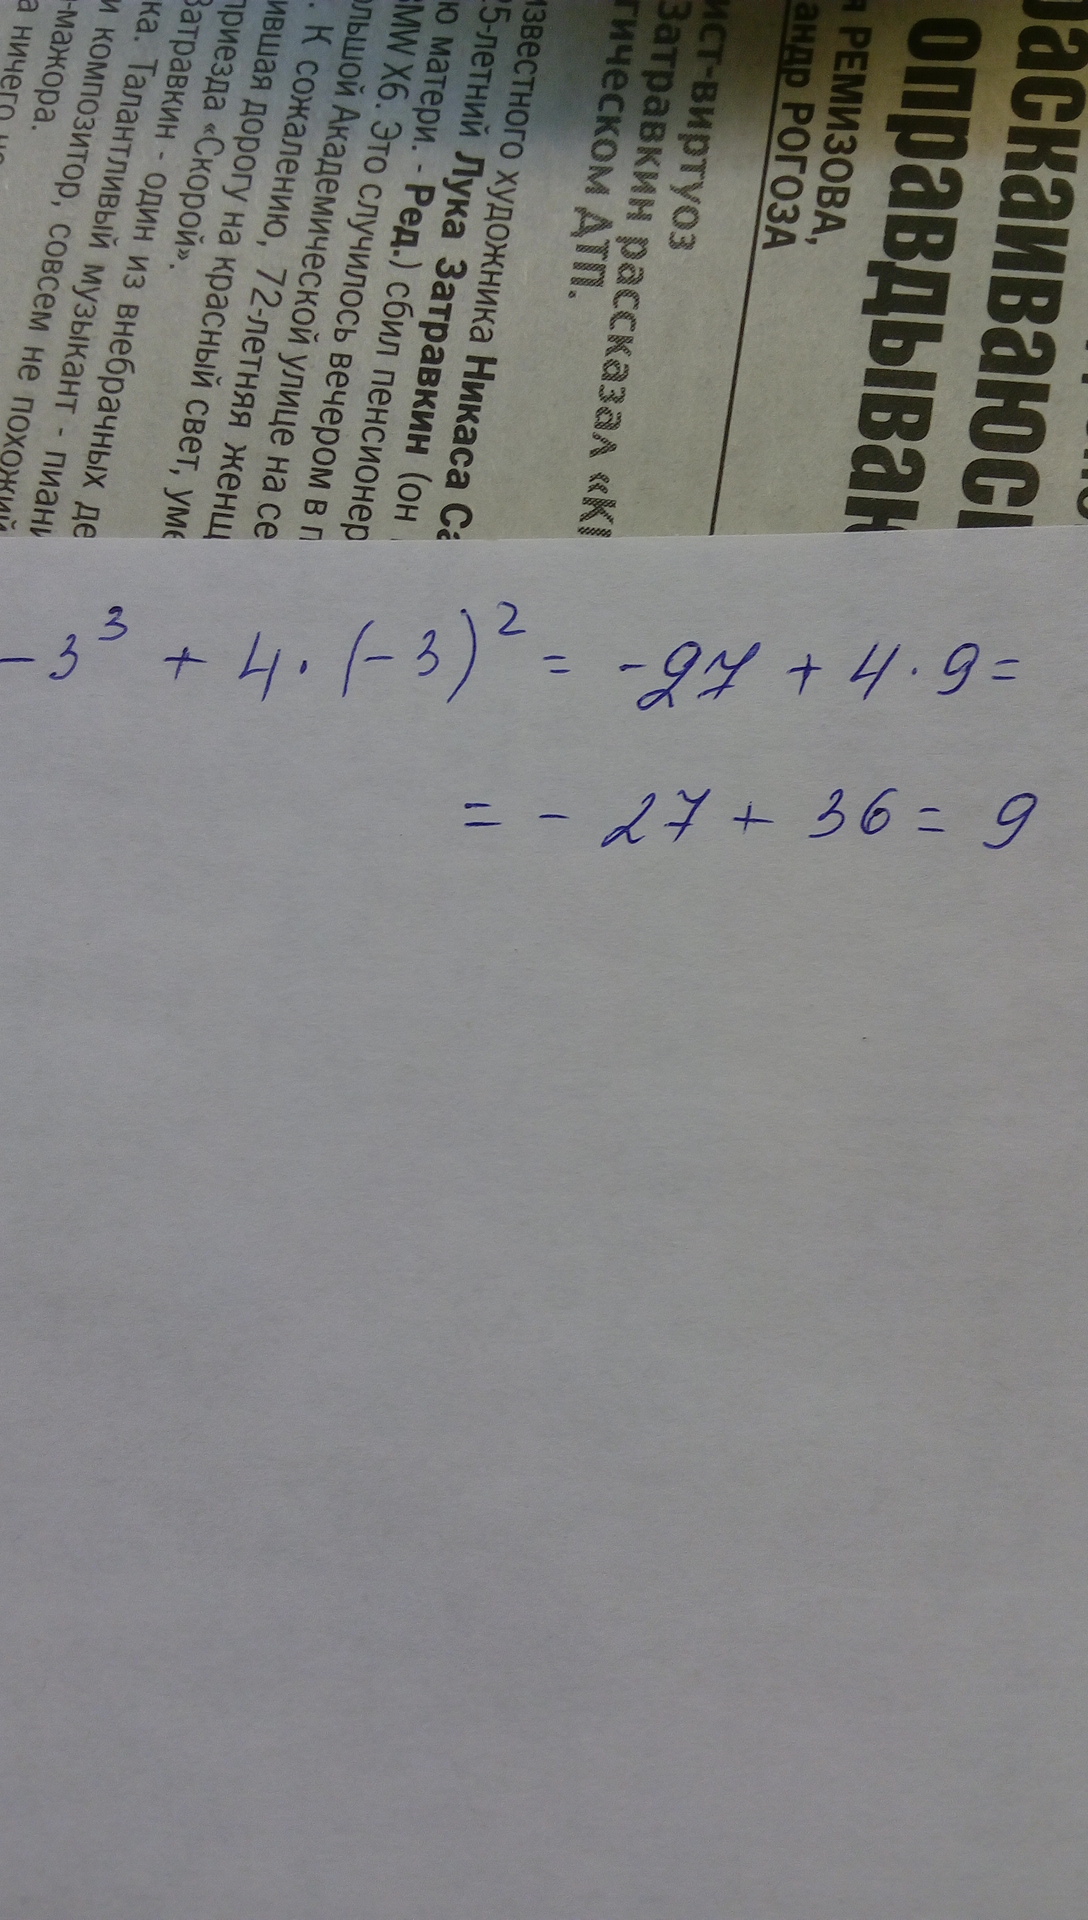 раскаиваюсь
оправдыван
я РЕМИЗОВА,
андр РОГОЗА
ист-виртуоз
Затравкин рассказал «КП
гическом ДТП.
известного художника Никаса Са
25-летний Лука Затравкин (он
ю матери. - Ред.) сбил пенсионер
BMW X6. Это случилось вечером в п
ольшой Академической улице на се
. К сожалению, 72-летняя женщ
ившая дорогу на красный свет, уме
приезда «Скорой».
Затравкин - один из внебрачных де
ка. Талантливый музыкант - пиани
и композитор, совсем не похожий
-мажора.
а ничего
-3³ + 4·(-3)² = -27 + 4·9 =
= - 27 + 36 = 9